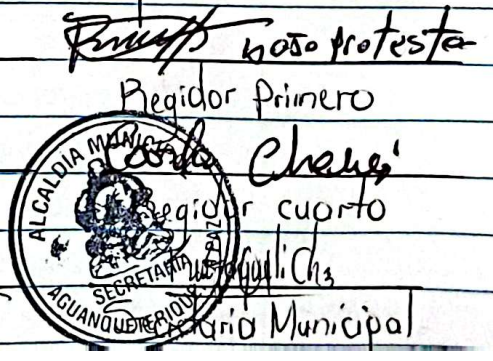 bajo protesta
Regidor Primero
Regidor cuarto
Secretaria Municipal
ALCALDIA MUNICIPAL
SECRETARIA
AGUANQUETERIQUE
LA PAZ